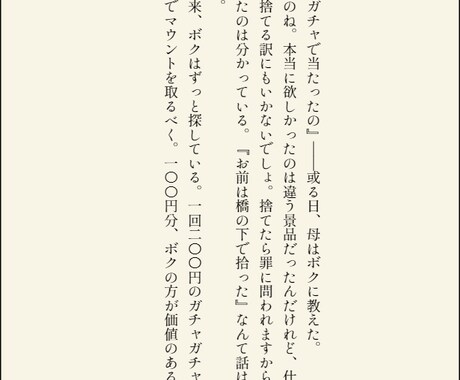 ガチャで当たったの』――或る日、母はボクに教えた。
のね。本当に欲しかったのは違う景品だったんだけれど、仕
捨てる訳にもいかないでしょ。捨てたら罪に問われますから
たのは分かっている。『お前は橋の下で拾った』なんて話は
。
来、ボクはずっと探している。一回二〇〇円のガチャガチャ
でマウントを取るべく。一〇〇円分、ボクの方が価値のある